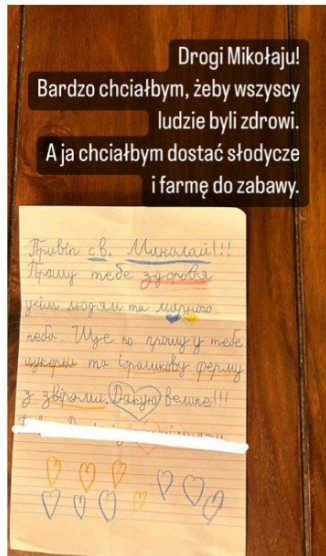 Drogi Mikołaju!
Bardzo chciałbym, żeby wszyscy
ludzie byli zdrowi.
A ja chciałbym dostać słodycze
i farmę do zabawy.
Привіт св. Миколай!!!
Прошу тебе здоровя
усім людям та мирного
неба. Ще по прошу у тебе
цукерки та іграшкову ферму
з звірями. Дякую велике!!!